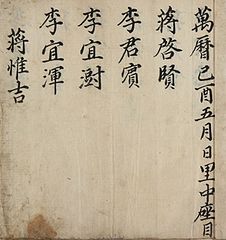 萬曆己酉五月日里中座目
蔣啓賢
李君賓
李宜澍
李宜渾
蔣惟吉